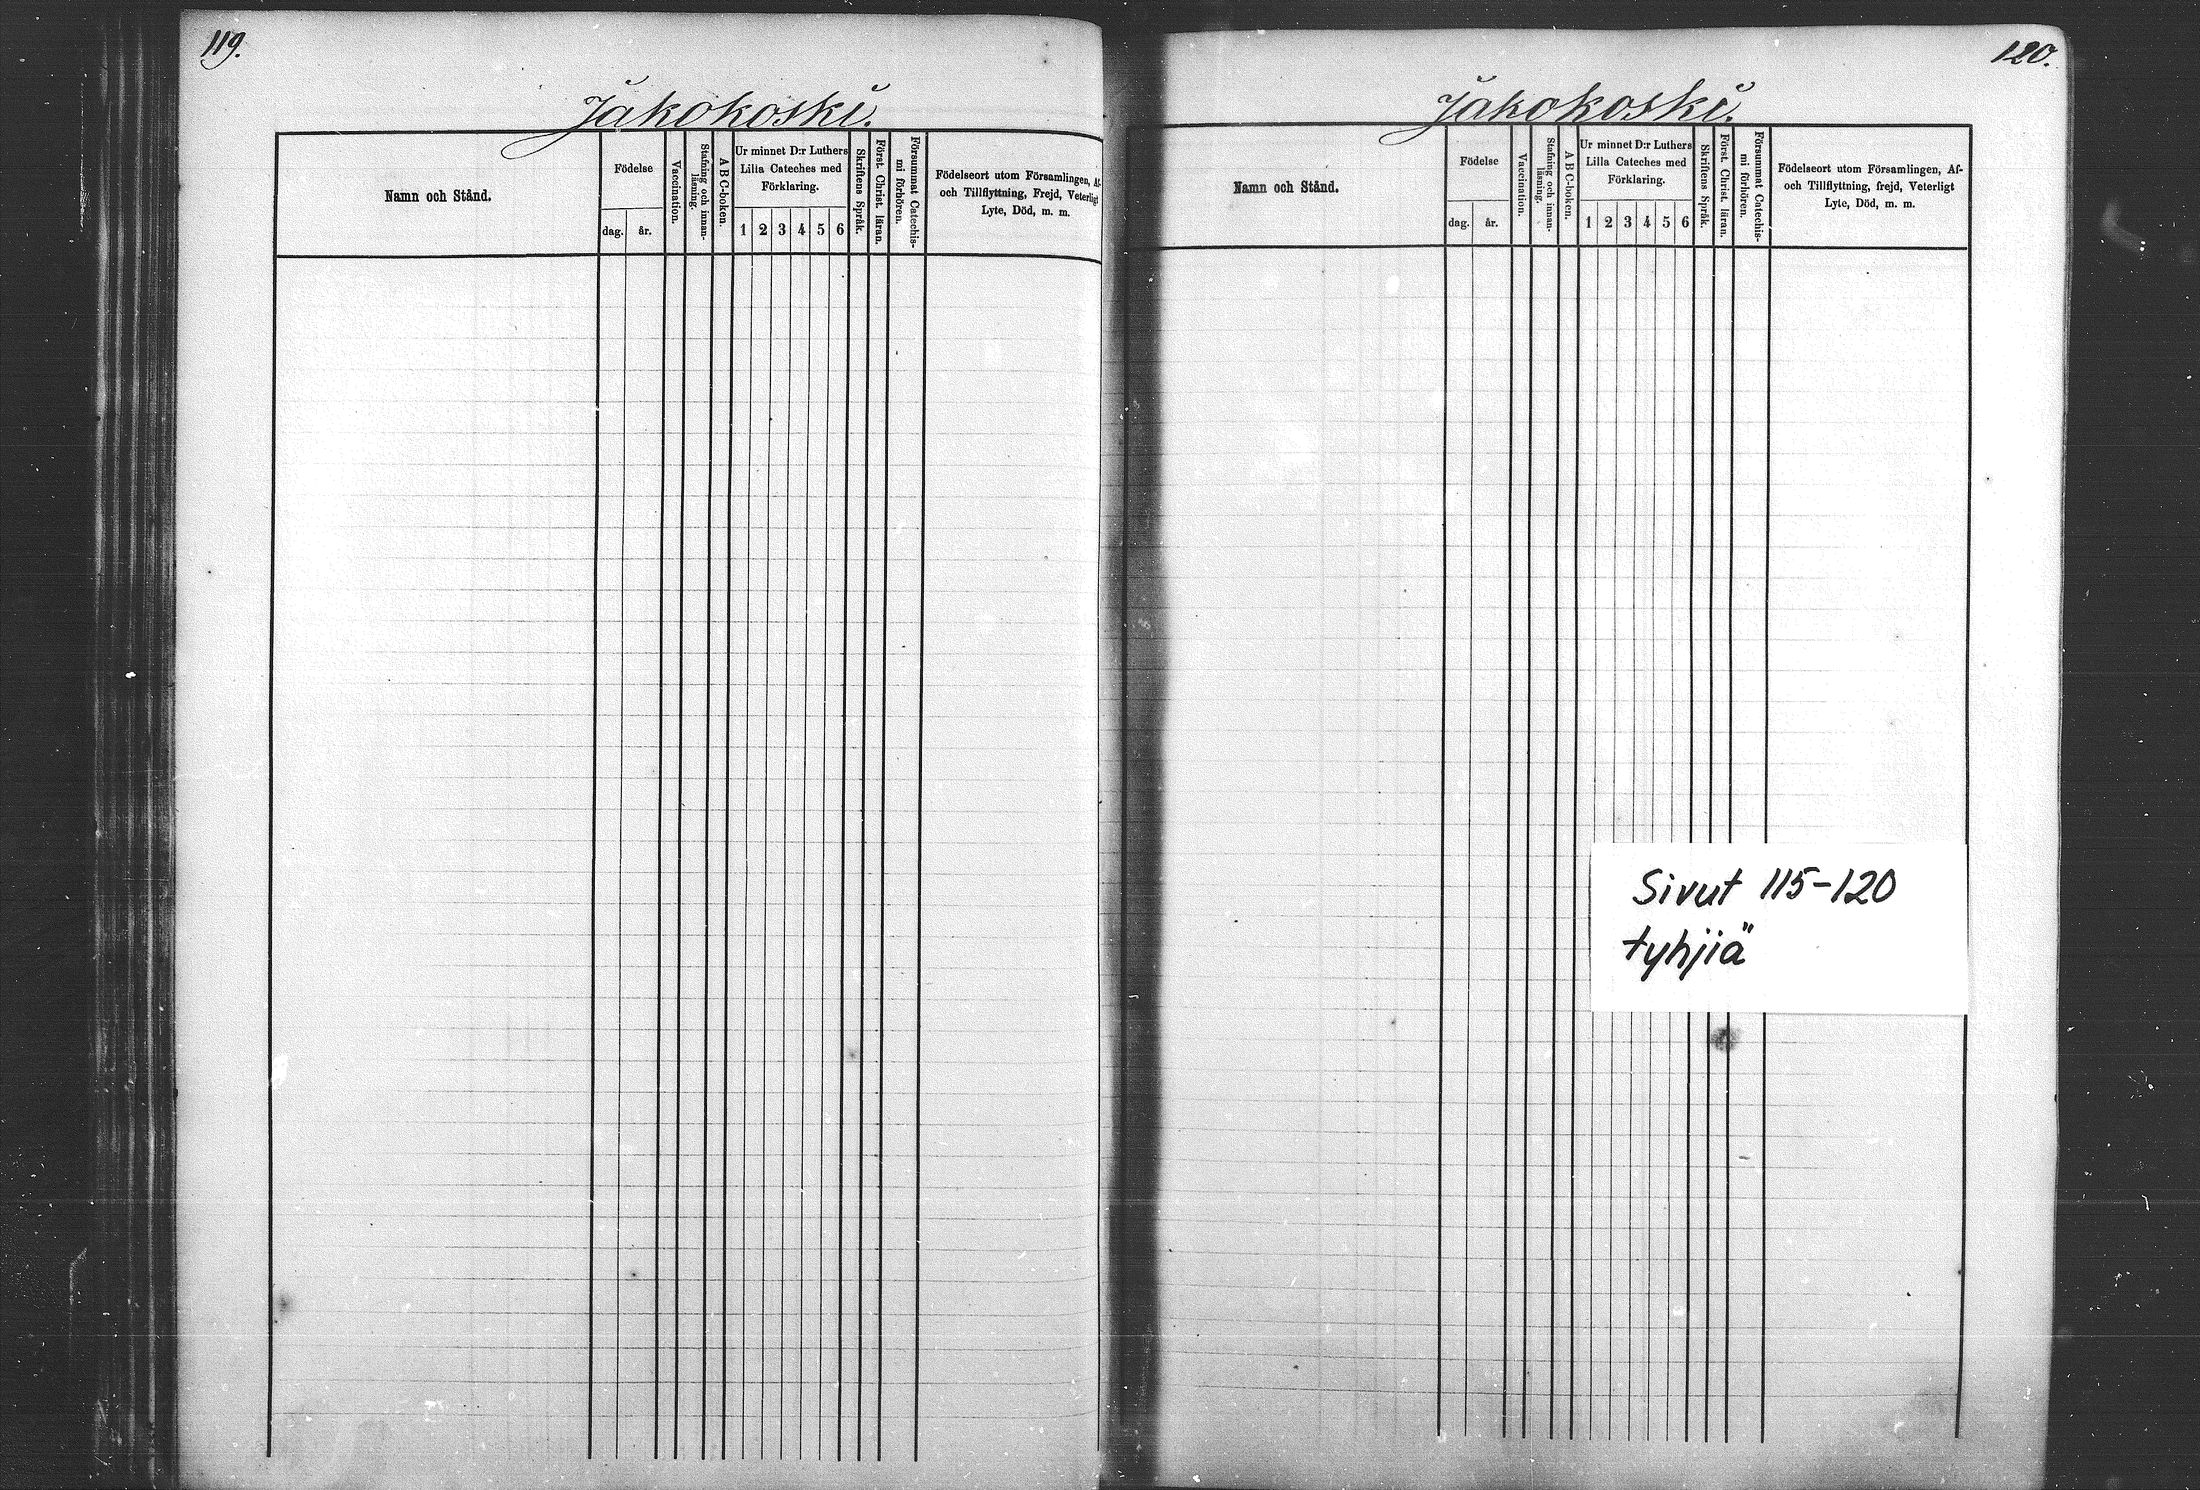 119.
Jakokoski.
Namn och Stånd.
Födelse
dag.
år.
Vaccination.
Stafning och innan-
läsning.
A B C-boken.
Ur minnet D:r Luthers
Lilla Cateches med
Förklaring.
1 2 3 4 5 6
Skriftens Språk.
Först. Christ. läran.
Försummat Catechis-
mi förhören.
Födelseort utom Församlingen, Af-
och Tillflyttning, Frejd, Veterligt
Lyte, Död, m. m.
120.
Jakokoski.
Namn och Stånd.
Födelse
dag.
år.
Vaccination.
Stafning och innan-
läsning.
A B C-boken.
Ur minnet D:r Luthers
Lilla Cateches med
Förklaring.
1 2 3 4 5 6
Skriftens Språk.
Först. Christ. läran.
Försummat Catechis-
mi förhören.
Födelseort utom Församlingen, Af-
och Tillflyttning, frejd, Veterligt
Lyte, Död, m. m.
Sivut 115-120
tyhjiä